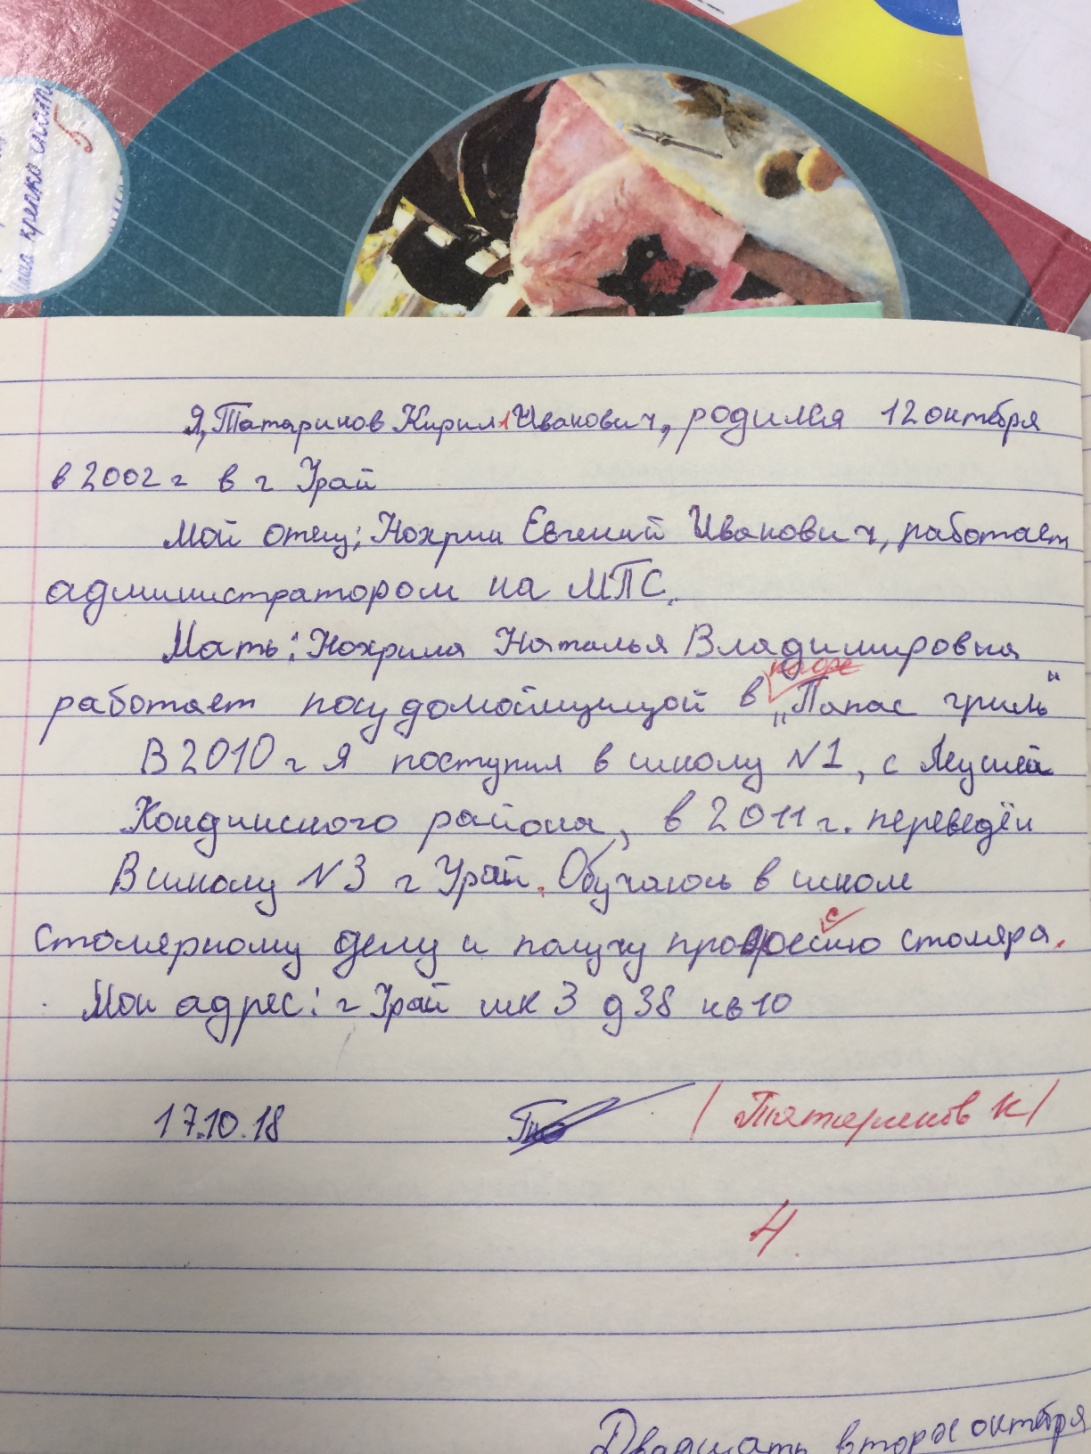 Маша крепко спать
Я, Татаринов Кирилл Иванович, родился 12 октября
в 2002 г в г Урай
Мой отец: Нохрин Евгений Иванович, работает
администратором на МПС.
Мать: Нохрина Наталья Владимировна
кафе
работает посудомойщицой в „Папас гриль“
В 2010 г я поступил в школу N1, с Леуши
Кондинского района, в 2011 г. переведён
В школу N3 г Урай. Обучаюсь в школе
с
столярному делу и получу професию столяра.
Мой адрес: г Урай мк 3 д 38 кв 10
17.10.18 / Татаринов К /
4.
Двадцать второе октября